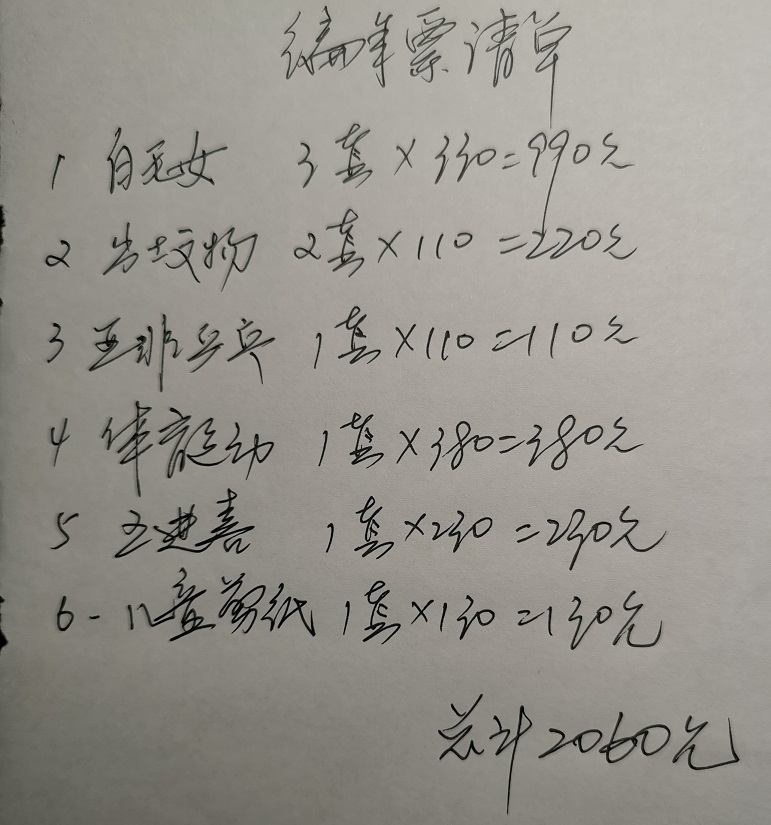 编年票清单
1 白毛女 3套×330=990元
2 出土文物 2套×110=220元
3 亚非乒乓 1套×110=110元
4 体育运动 1套×380=380元
5 王进喜 1套×230=230元
6-儿童剪纸 1套×130=130元
总计2060元